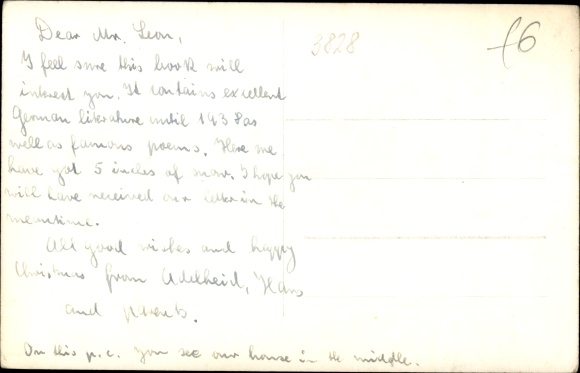 Dear Mr. Leon,
I feel sure this book will
interest you. It contains excellent
German literature until 1938 as
well as famous poems. Here we
have got 5 inches of snow. I hope you
will have received our letter in the
meantime.
All good wishes and happy
Christmas from Adelheid, Hans
and
On this p.c. you see our house in the middle.
3828
£6